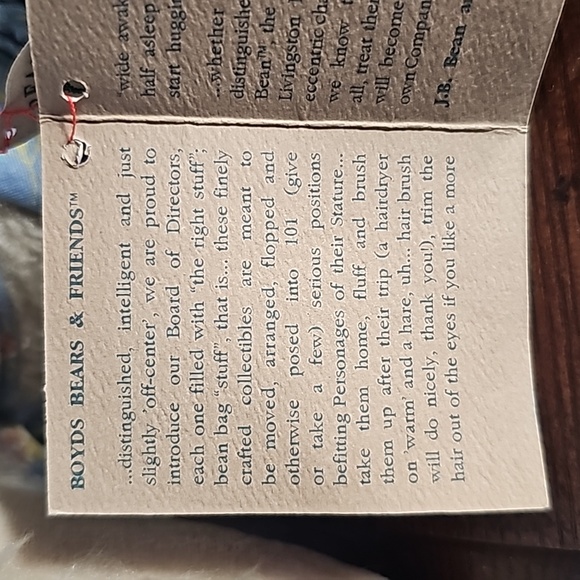 BOYDS BEARS & FRIENDS™
...distinguished, intelligent and just
slightly 'off-center', we are proud to
introduce our Board of Directors,
each one filled with "the right stuff";
bean bag "stuff", that is... these finely
crafted collectibles are meant to
be moved, arranged, flopped and
otherwise posed into 101 (give
or take a few) serious positions
befitting Personages of their Stature...
take them home, fluff and brush
them up after their trip (a hairdryer
on 'warm' and a hare, uh... hair brush
will do nicely, thank you!), trim the
hair out of the eyes if you like a more
wide awak
half asleep
start huggin
...whether
distinguishe
Bean™, the
Livingston
eccentric cha
we know t
all, treat them
will become
own Compan
J.B. Bean a